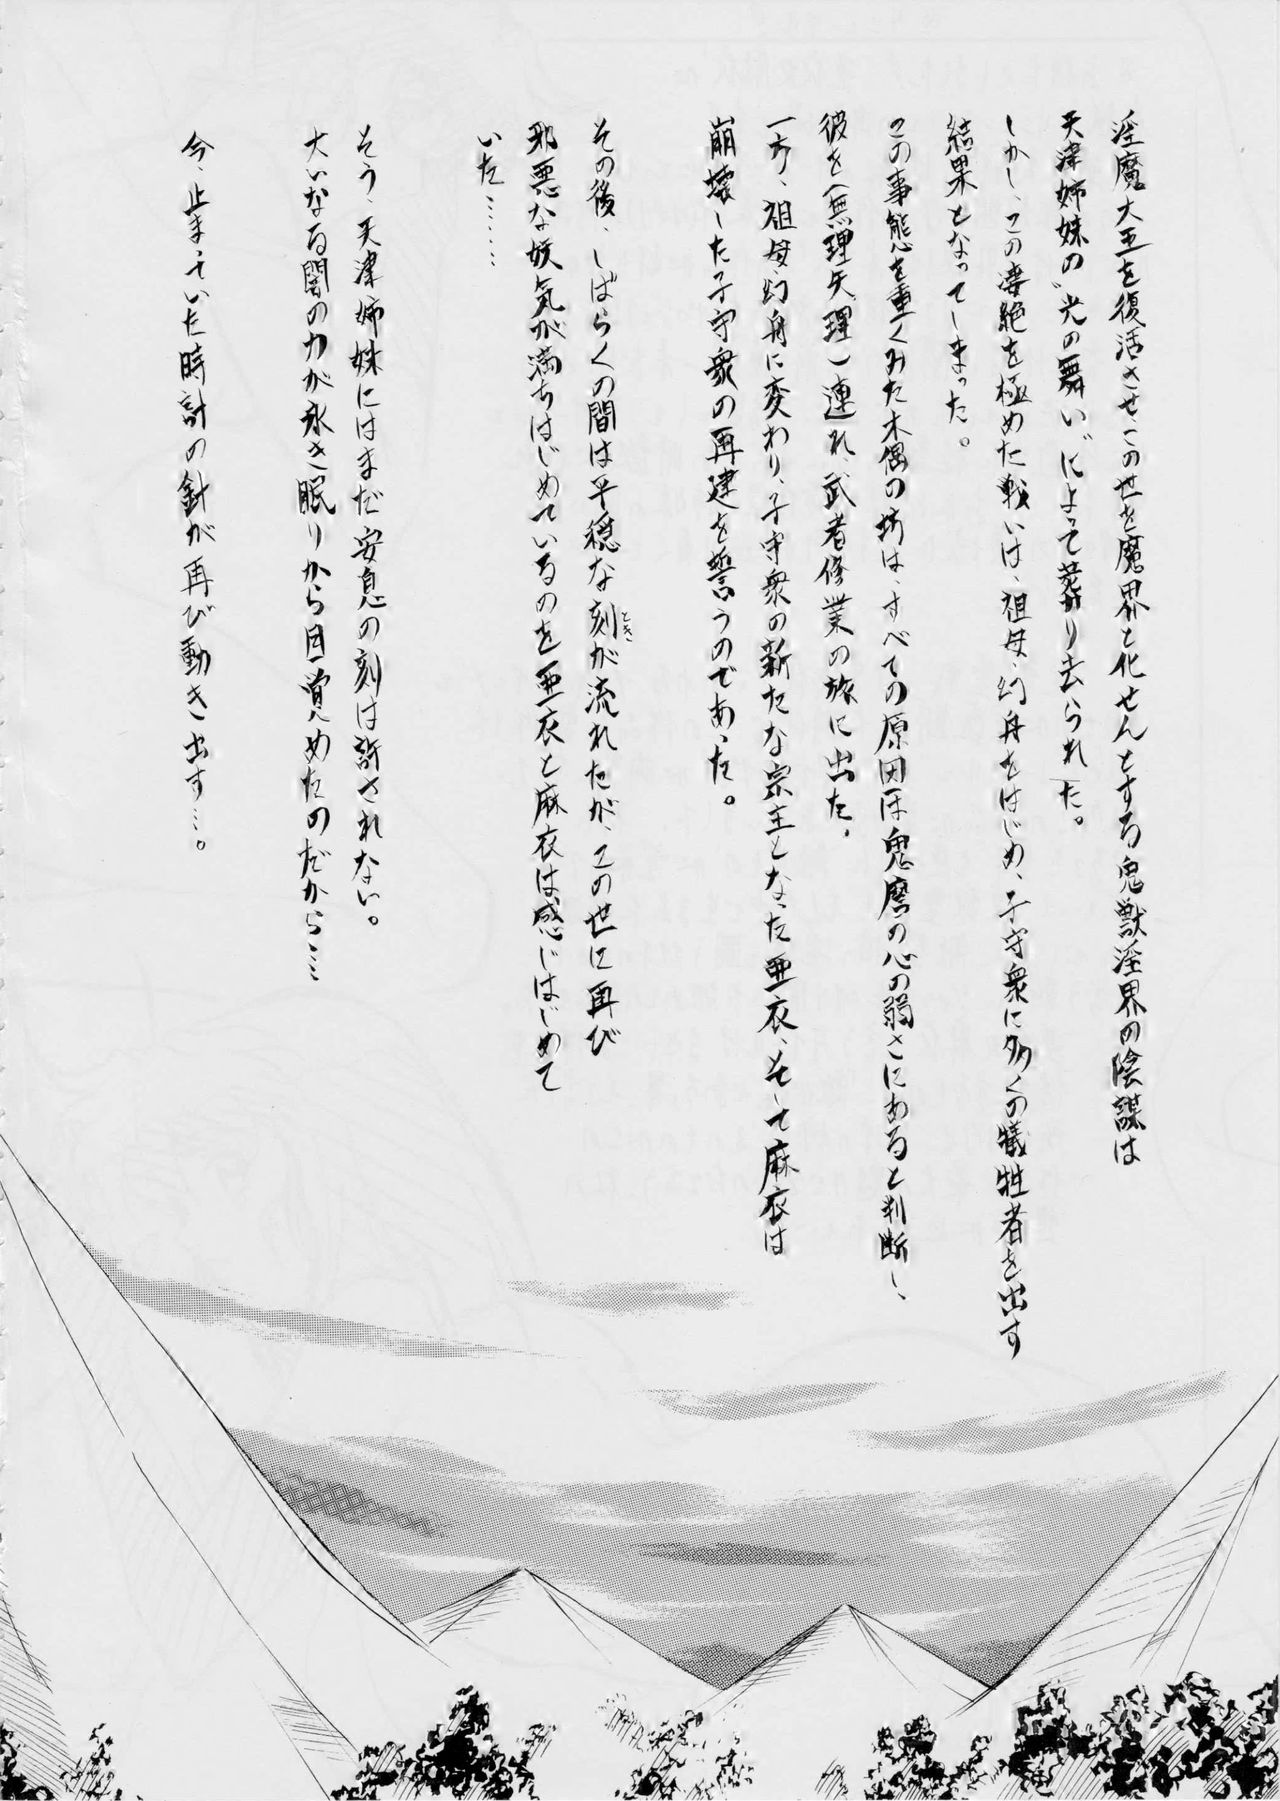 淫魔大王を復活させ、この世を魔界と化せんとする鬼獣淫界の陰謀は
天津姉妹の〝光の舞い〟によって葬り去られた。
しかし、この凄絶を極めた戦いは、祖母・幻舟をはじめ、子守衆に多くの犠牲者を出す
結果となってしまった。
この事態を重くみた木偶の坊は、すべての原因は鬼麿の心の弱さにあると判断し、
彼を（無理矢理）連れ、武者修業の旅に出た。
一方、祖母・幻舟に変わり、子守衆の新たな宗主となった亜衣、そして麻衣は
崩壊した子守衆の再建を誓うのであった。
その後、しばらくの間は平穏な刻が流れたが、この世に再び
とき
邪悪な妖気が満ちはじめているのを亜衣と麻衣は感じはじめて
いた……
そう、天津姉妹にはまだ安息の刻は許されない。
大いなる闇の力が永き眠りから目覚めたのだから……
今、止まっていた時計の針が再び動き出す…。